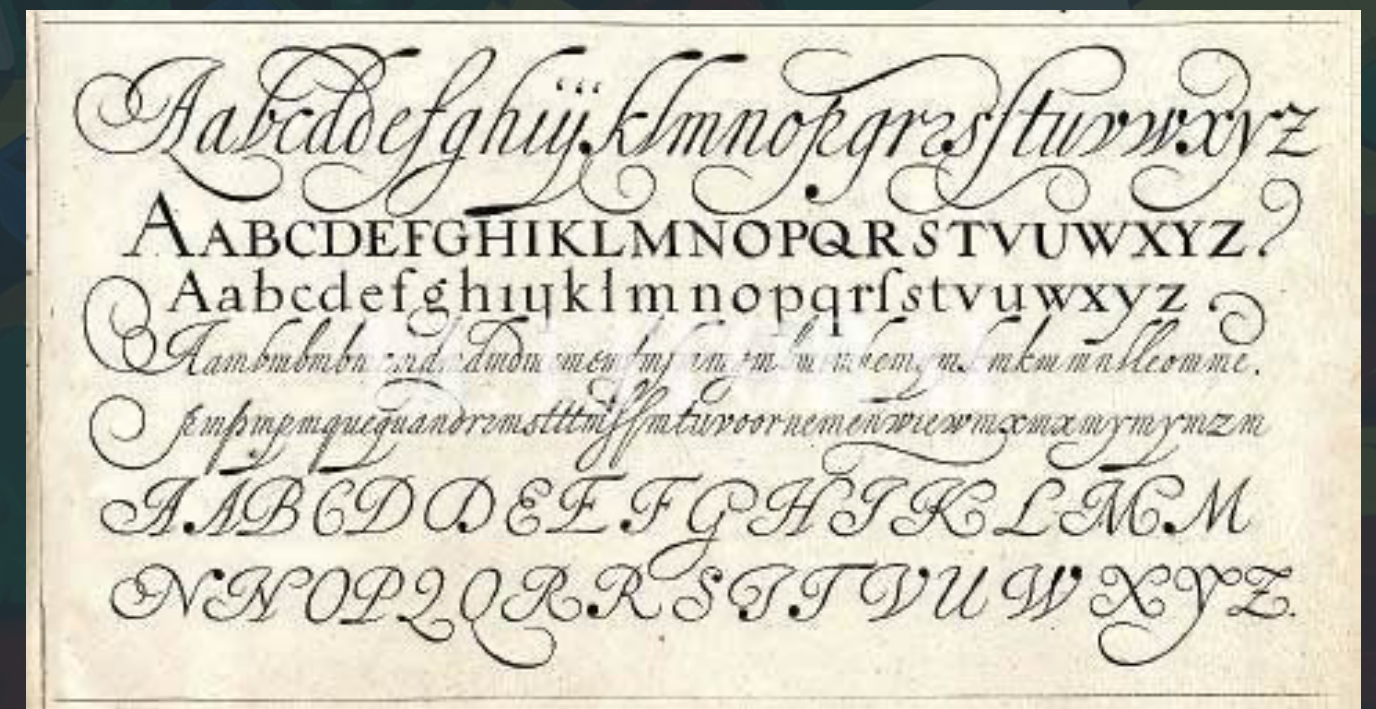 Aabcddefghiijklmnopqrrsſtuvwxyz
AABCDEFGHIKLMNOPQRSTVUWXYZ?
Aabcdefghıijklmnopqrſstvuwxyz
Aambmbmbm
pmpmpmquequandrzmstttmſſſmtuvoornemenwiewmxmxmymymzm
AABCDDEEFGHIKLMM
NNOPQQRRSTTVUWXYZ.